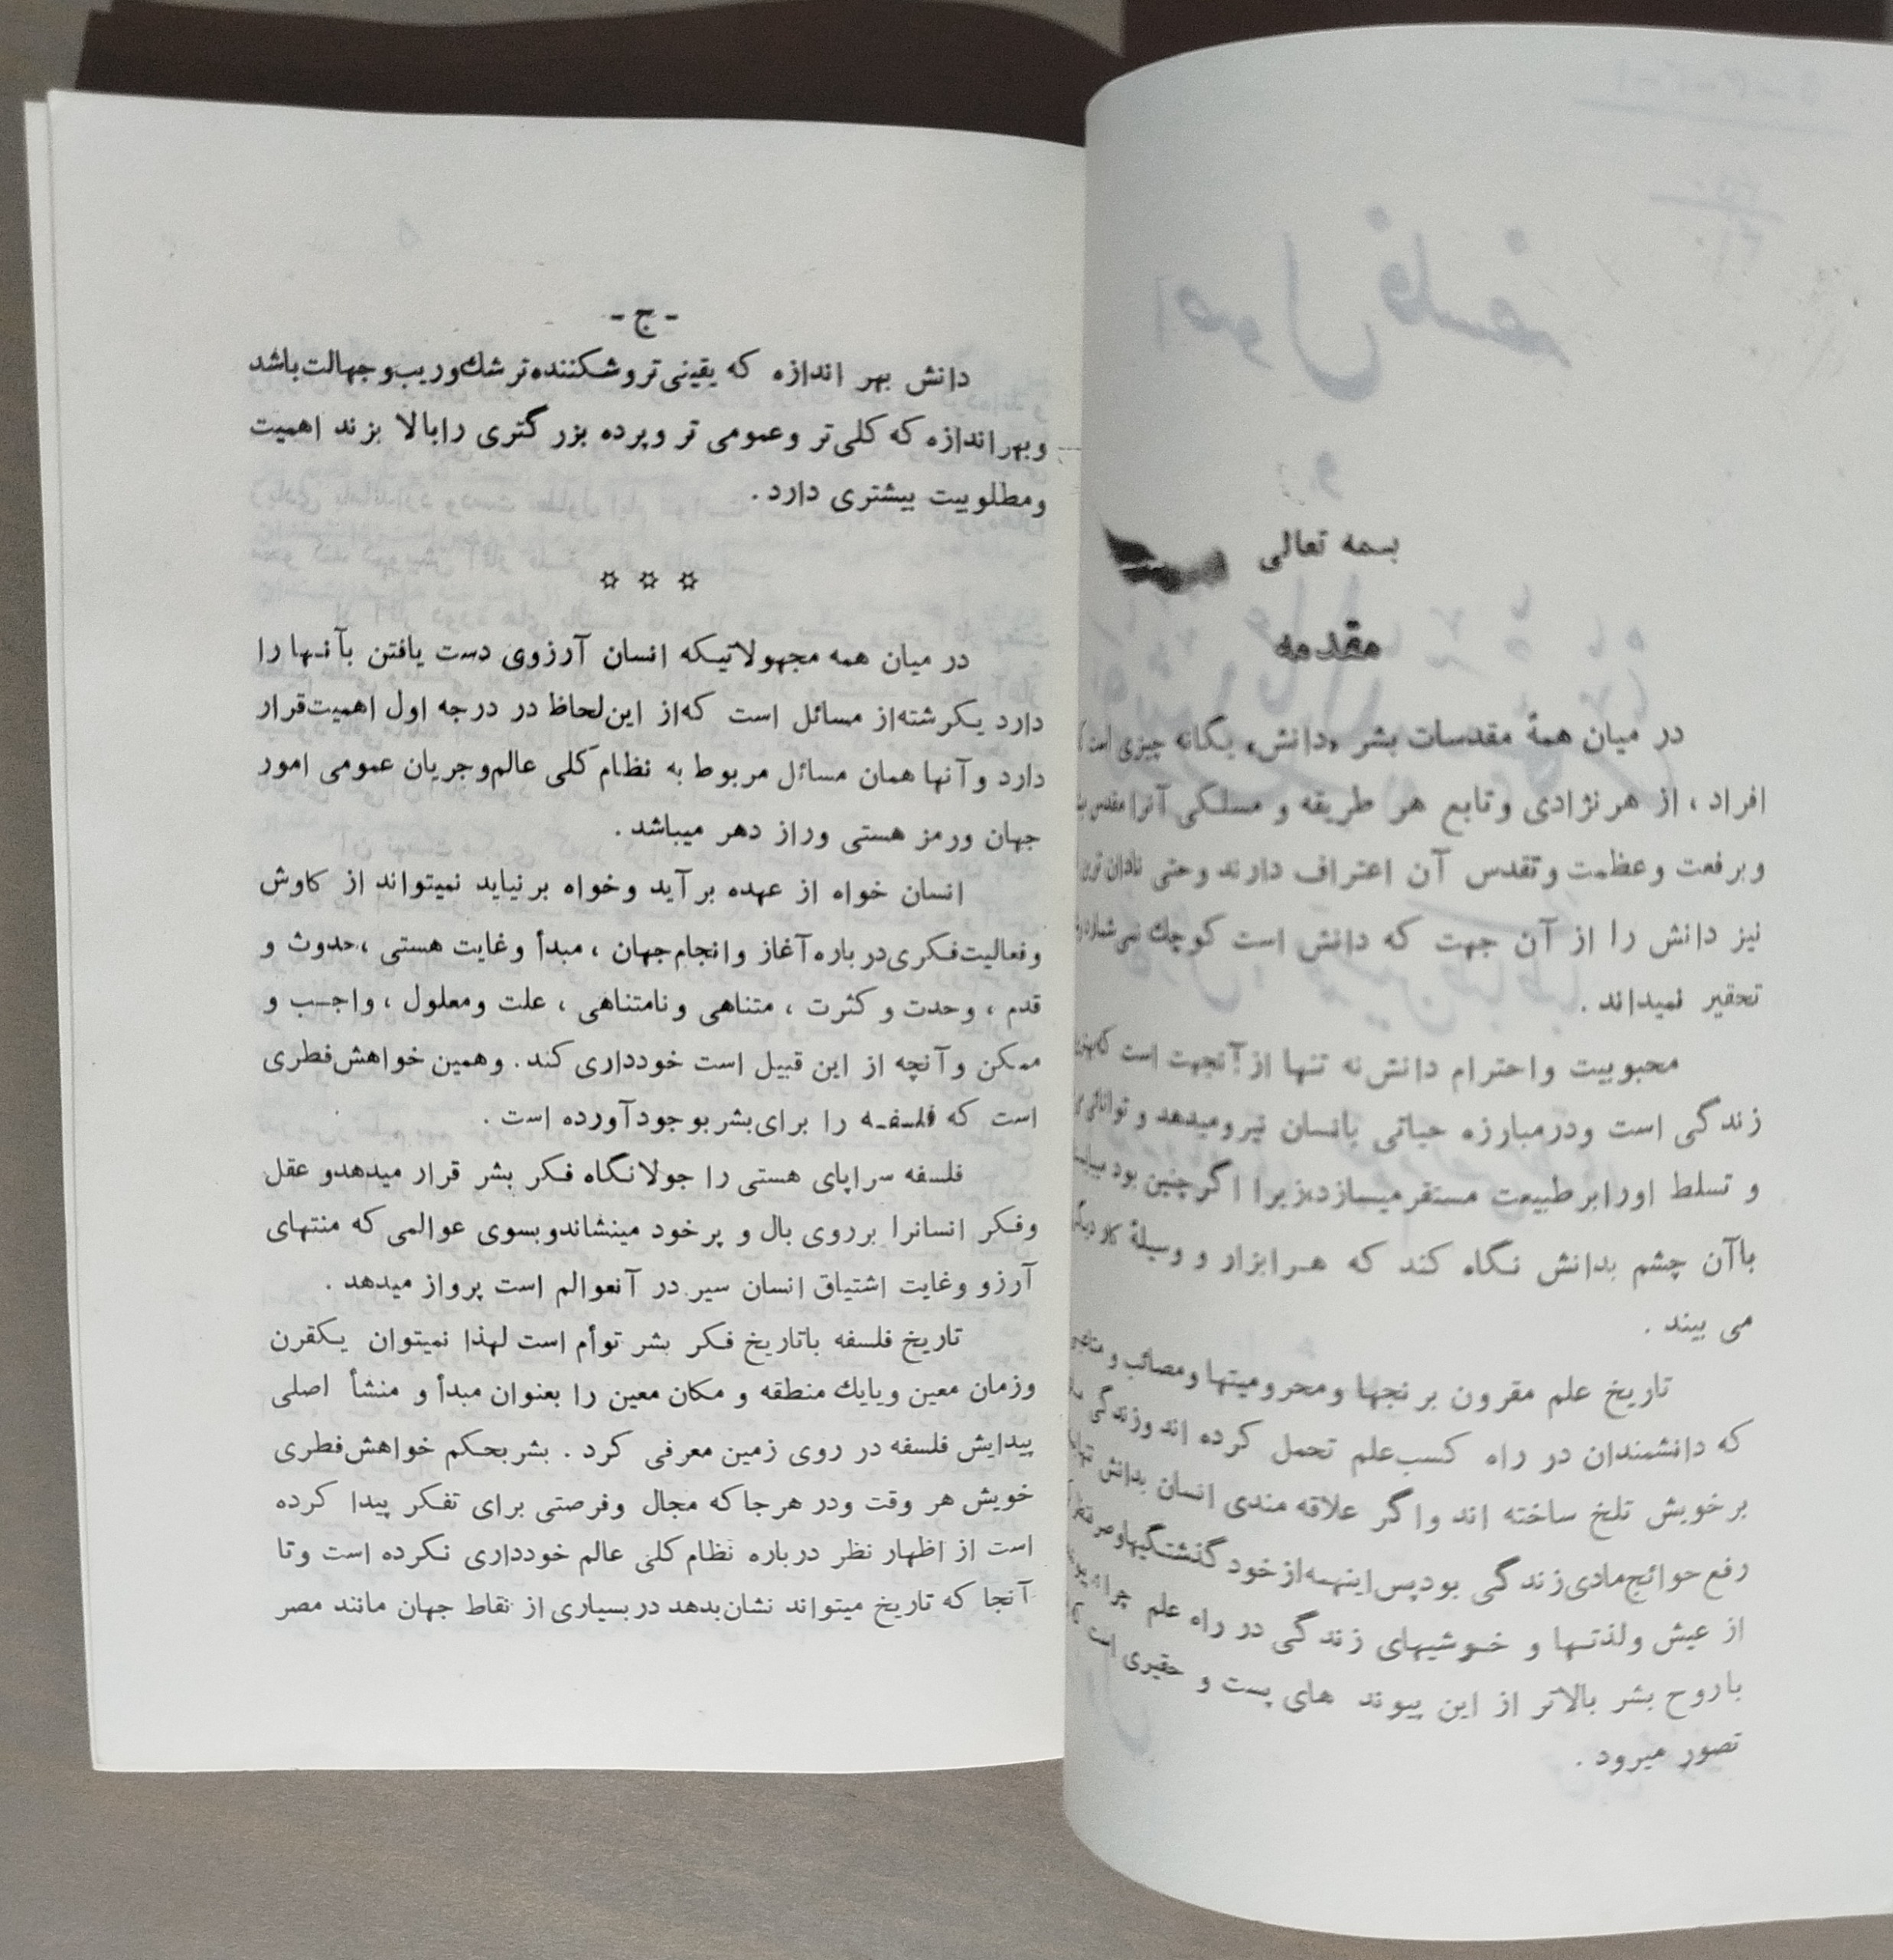 بسمه تعالی
مقدمه
در میان همهٔ مقدسات بشر «دانش» یگانه چیزی است
افراد ، از هر نژادی و تابع هر طریقه و مسلکی آنرا مقدس
و برفعت و عظمت و تقدس آن اعتراف دارند و حتی نادان ترین
نیز دانش را از آن جهت که دانش است کوچك نمی شمارد
تحقیر نمیداند .
محبوبیت و احترام دانش نه تنها از آنجهت است که
زندگی است و در مبارزه حیاتی بانسان نیرو میدهد و توانائی
و تسلط او را بر طبیعت مستقر میسازد؛ زیرا اگر چنین بود
با آن چشم بدانش نگاه کند که هر ابزار و وسیلهٔ کار
می بیند .
تاریخ علم مقرون برنجها و محرومیتها و مصائب و
که دانشمندان در راه کسب علم تحمل کرده اند و زندگی
بر خویش تلخ ساخته اند و اگر علاقه مندی انسان بدانش
رفع حوائج مادی زندگی بود پس اینهمه از خود گذشتگیها و
از عیش و لذتها و خوشیهای زندگی در راه علم چرا
با روح بشر بالاتر از این پیوند های پست و حقیری است
تصور میرود .
- ج -
دانش بهر اندازه که یقینی تر و شکننده تر شك و ریب و جهالت باشد
و بهر اندازه که کلی تر و عمومی تر و پرده بزرگتری را بالا بزند اهمیت
و مطلوبیت بیشتری دارد .
✡ ✡ ✡
در میان همه مجهولاتیکه انسان آرزوی دست یافتن بآنها را
دارد یکرشته از مسائل است که از این لحاظ در درجه اول اهمیت قرار
دارد و آنها همان مسائل مربوط به نظام کلی عالم و جریان عمومی امور
جهان و رمز هستی و راز دهر میباشد .
انسان خواه از عهده بر آید و خواه بر نیاید نمیتواند از کاوش
و فعالیت فکری در باره آغاز و انجام جهان ، مبدأ و غایت هستی ، حدوث و
قدم ، وحدت و کثرت ، متناهی و نامتناهی ، علت و معلول ، واجب و
ممکن و آنچه از این قبیل است خودداری کند . و همین خواهش فطری
است که فلسفه را برای بشر بوجود آورده است .
فلسفه سراپای هستی را جولانگاه فکر بشر قرار میدهد و عقل
و فکر انسانرا بر روی بال و پر خود مینشاند و بسوی عوالمی که منتهای
آرزو و غایت اشتیاق انسان سیر در آنعوالم است پرواز میدهد .
تاریخ فلسفه با تاریخ فکر بشر توأم است لهذا نمیتوان یکقرن
و زمان معین و یا یك منطقه و مکان معین را بعنوان مبدأ و منشأ اصلی
پیدایش فلسفه در روی زمین معرفی کرد . بشر بحکم خواهش فطری
خویش هر وقت و در هر جا که مجال و فرصتی برای تفکر پیدا کرده
است از اظهار نظر در باره نظام کلی عالم خودداری نکرده است و تا
آنجا که تاریخ میتواند نشان بدهد در بسیاری از نقاط جهان مانند مصر